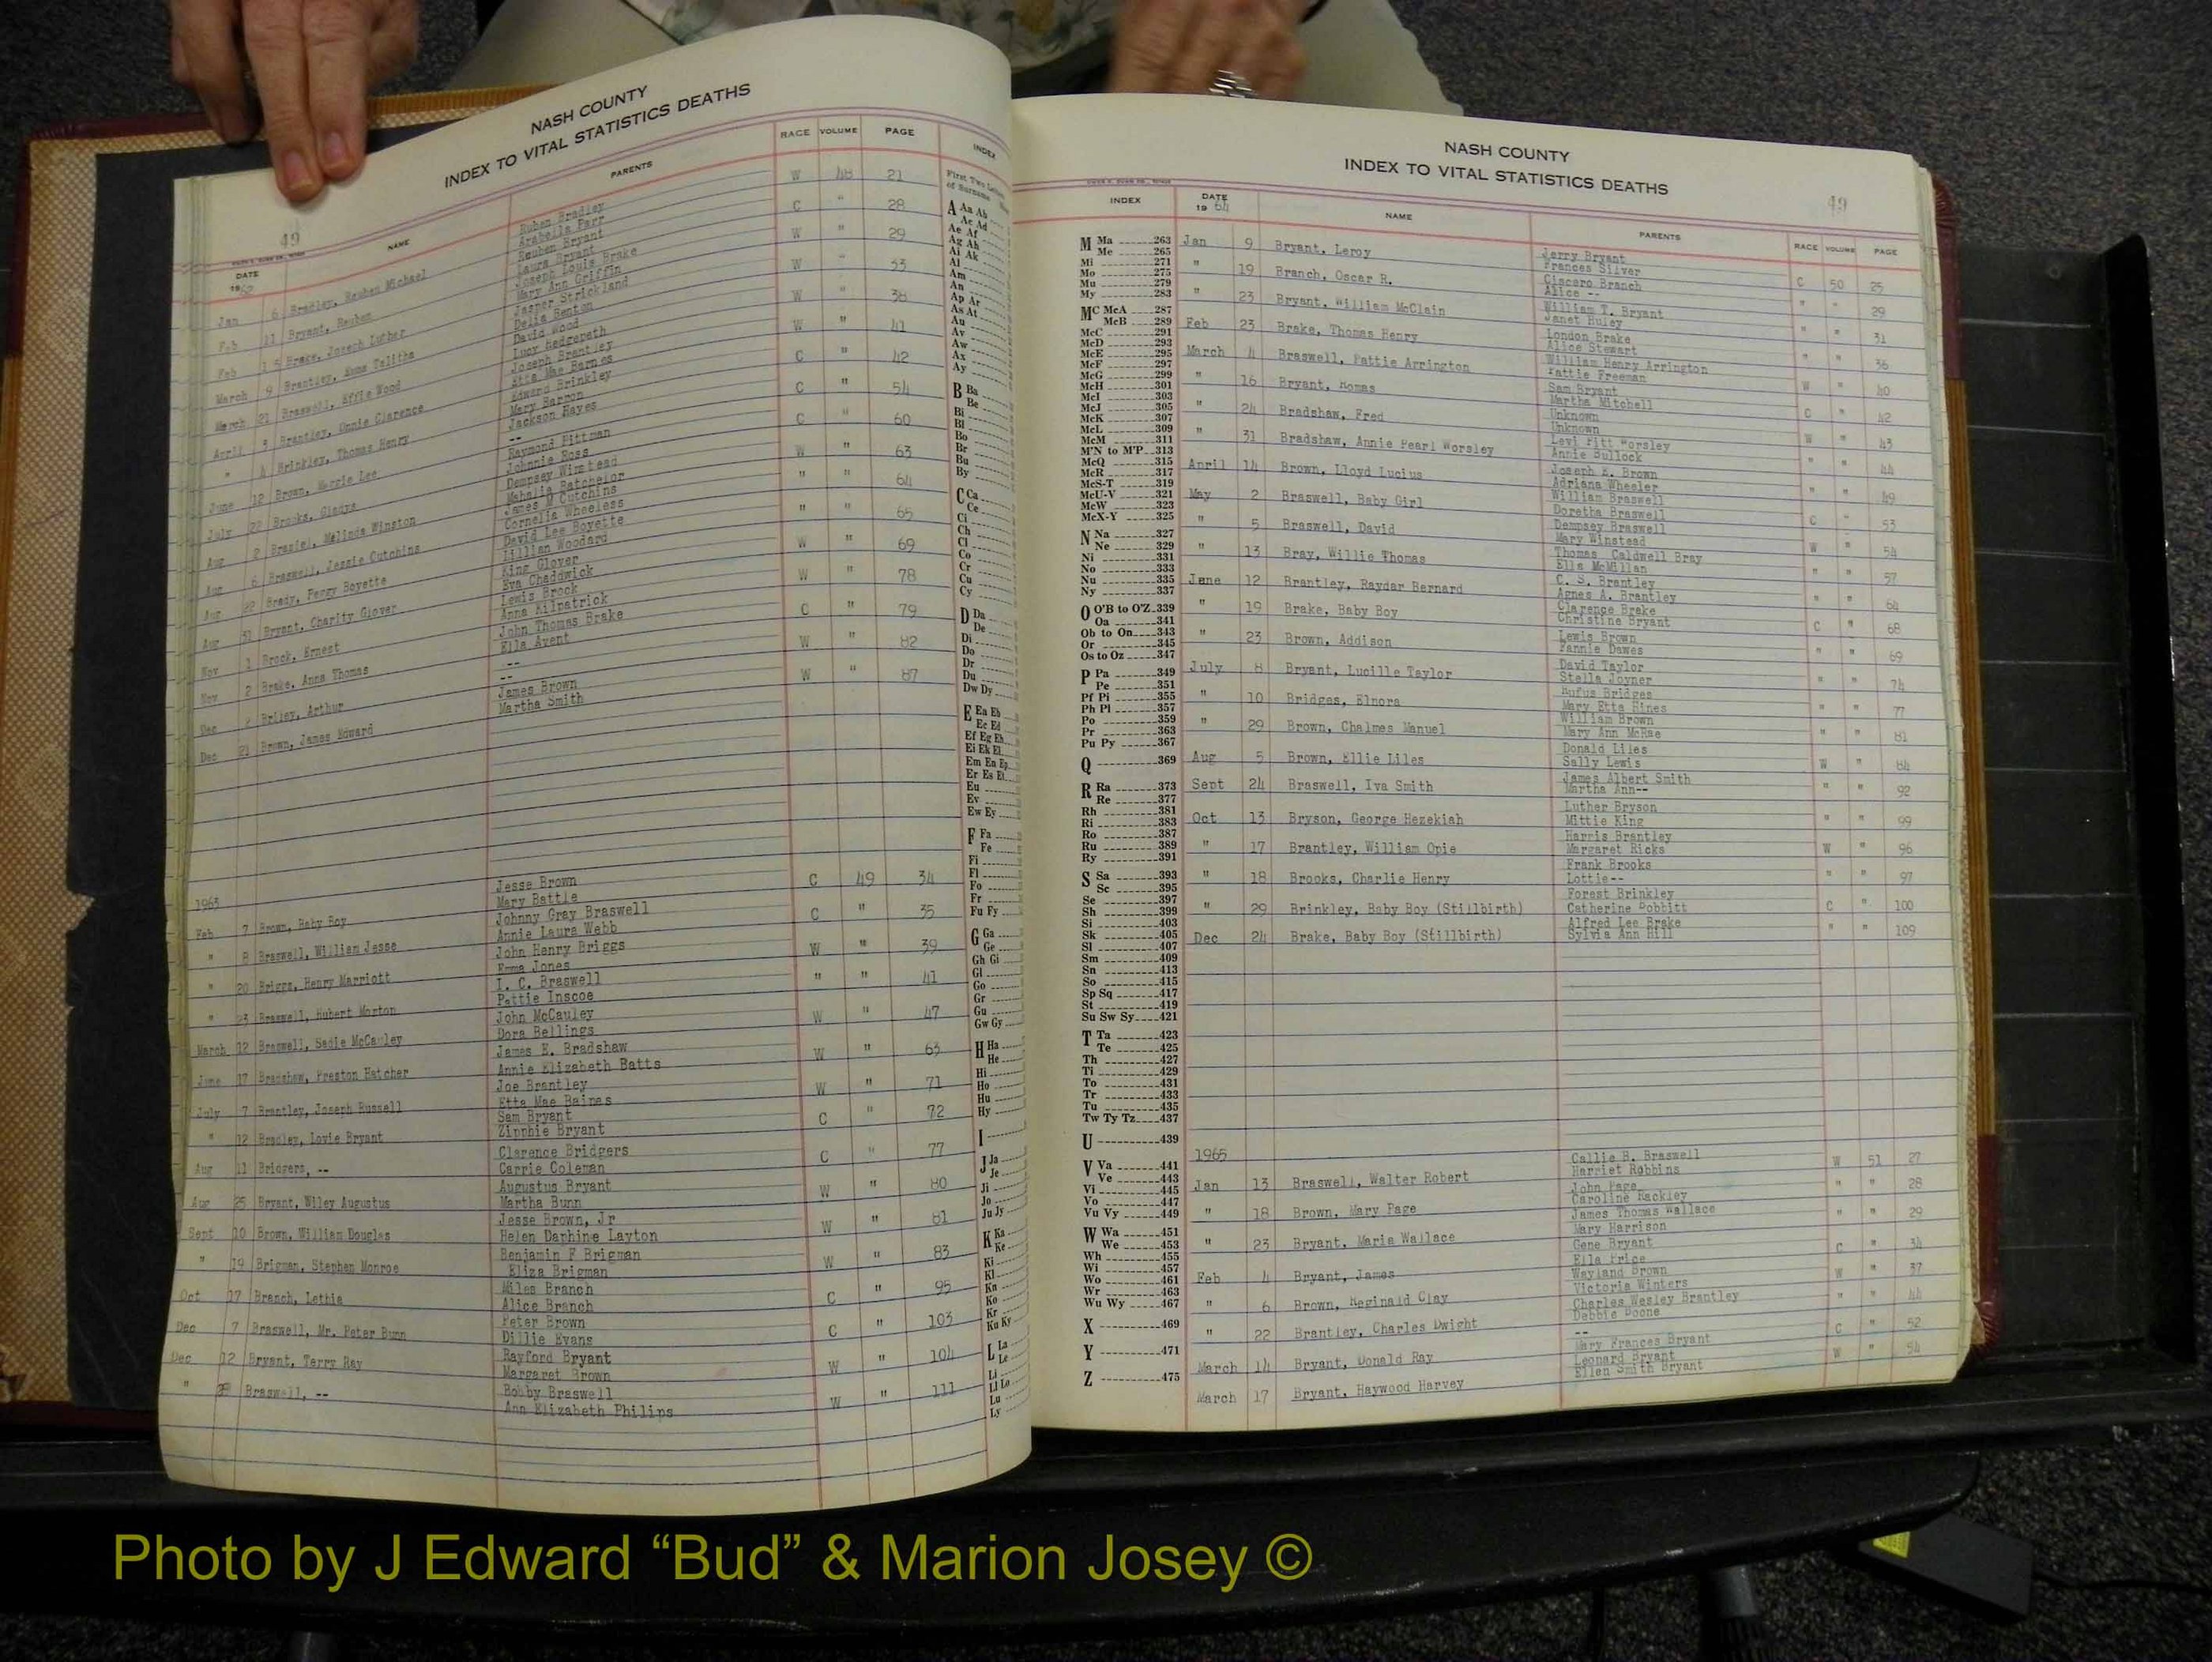 NASH COUNTY
INDEX TO VITAL STATISTICS DEATHS
49
DATE NAME PARENTS RACE VOLUME PAGE INDEX
1962
Jan 6 Bradley, Reuben Michael Ruben Bradley W 48 21
Arabella Parr
Feb 11 Bryant, Reuben Reuben Bryant C " 28
Laura Bryant
Feb 15 Brake, Joseph Luther Joseph Louis Brake W " 29
Mary Ann Griffin
March 9 Brantley, Emma Talitha Jasper Strickland W " 33
Delia Benton
March 21 Braswell, Effie Wood David Wood W " 38
Lucy Hedgepeth
April 3 Brantley, Onnie Clarence Joseph Brantley W " 41
Etta Mae Barnes
" 4 Brinkley, Thomas Henry Edward Brinkley C " 42
Mary Barron
June 12 Brown, Maggie Lee Jackson Hayes C " 54
--
July 22 Brooks, Gladys Raymond Pittman C " 60
Johnnie Ross
Aug 2 Braziel, Malinda Winston Dempsey Winstead W " 63
Mahalia Batchelor
Aug 6 Braswell, Jessie Cutchins James M Cutchins " " 64
Cornelia Wheeless
Aug 22 Brady, Peggy Boyette David Lee Boyette " " 65
Lillian Woodard
Aug 31 Bryant, Charity Glover King Glover W " 69
Eva Chaddwick
Nov 1 Brock, Ernest Lewis Brock W " 78
Anna Kilpatrick
Nov 2 Brake, Anna Thomas John Thomas Brake C " 79
Ella Avent
Dec Briley, Arthur -- W " 82
--
Dec 21 Brown, James Edward James Brown W " 87
Martha Smith
1963
Feb 7 Brown, Baby Boy Jesse Brown C 49 34
Mary Battle
" 8 Braswell, William Jesse Johnny Gray Braswell C " 35
Annie Laura Webb
" 20 Briggs, Henry Marriott John Henry Briggs W " 39
Emma Jones
" 23 Braswell, Hubert Morton I. C. Braswell " " 41
Pattie Inscoe
March 12 Braswell, Sadie McCauley John McCauley W " 47
Dora Bellings
June 17 Bradshaw, Preston Hatcher James E. Bradshaw W " 63
Annie Elizabeth Batts
July 7 Brantley, Joseph Russell Joe Brantley W " 71
Etta Mae Baines
" 12 Bradley, Lovie Bryant Sam Bryant C " 72
Zipphie Bryant
Aug 11 Bridgers, -- Clarence Bridgers C " 77
Carrie Coleman
Aug 25 Bryant, Wiley Augustus Augustus Bryant W " 80
Martha Bunn
Sept 10 Brown, William Douglas Jesse Brown, Jr W " 81
Helen Daphine Layton
" 19 Brigman, Stephen Monroe Benjamin F Brigman W " 83
Eliza Brigman
Oct 17 Branch, Lethia Miles Branch C " 95
Alice Branch
Dec 7 Braswell, Mr. Peter Bunn Peter Brown C " 103
Dillie Evans
Dec 12 Bryant, Terry Ray Rayford Bryant W " 104
Margaret Brown
" Braswell, -- Bobby Braswell W " 111
Ann Elizabeth Philips
First Two Letters
of Surname
A Aa Ab
Ac Ad
Ae Af
Ag Ah
Ai Ak
Al
Am
An
Ap Ar
As At
Au
Av
Aw
Ax
Ay
B Ba
Be
Bi
Bl
Bo
Br
Bu
By
C Ca
Ce
Ci
Ch
Cl
Co
Cr
Cu
Cy
D Da
De
Di
Do
Dr
Du
Dw Dy
E Ea Eb
Ec Ed
Ef Eg Eh
Ei Ek El
Em En Ep
Er Es Et
Eu
Ev
Ew Ey
F Fa
Fe
Fi
Fl
Fo
Fr
Fu Fy
G Ga
Ge
Gh Gi
Gl
Go
Gr
Gu
Gw Gy
H Ha
He
Hi
Ho
Hu
Hy
I
J Ja
Je
Ji
Jo
Ju Jy
K Ka
Ke
Ki
Kl
Kn
Ko
Kr
Ku Ky
L La
Le
Li
Ll Lo
Lu
Ly
NASH COUNTY
INDEX TO VITAL STATISTICS DEATHS
49
INDEX DATE NAME PARENTS RACE VOLUME PAGE
1964
M Ma 263
Me 265
Mi 271
Mo 275
Mu 279
My 283
MC McA 287
McB 289
McC 291
McD 293
McE 295
McF 297
McG 299
McH 301
McI 303
McJ 305
McK 307
McL 309
McM 311
M'N to M'P 313
McQ 315
McR 317
McS-T 319
McU-V 321
McW 323
McX-Y 325
N Na 327
Ne 329
Ni 331
No 333
Nu 335
Ny 337
O O'B to O'Z 339
Oa 341
Ob to On 343
Or 345
Os to Oz 347
P Pa 349
Pe 351
Pf Pi 355
Ph Pl 357
Po 359
Pr 363
Pu Py 367
Q 369
R Ra 373
Re 377
Rh 381
Ri 383
Ro 387
Ru 389
Ry 391
S Sa 393
Sc 395
Se 397
Sh 399
Si 403
Sk 405
Sl 407
Sm 409
Sn 413
So 415
Sp Sq 417
St 419
Su Sw Sy 421
T Ta 423
Te 425
Th 427
Ti 429
To 431
Tr 433
Tu 435
Tw Ty Tz 437
U 439
V Va 441
Ve 443
Vi 445
Vo 447
Vu Vy 449
W Wa 451
We 453
Wh 455
Wi 457
Wo 461
Wr 463
Wu Wy 467
X 469
Y 471
Z 475
Jan 9 Bryant, Leroy Jerry Bryant C 50 25
Frances Silver
" 19 Branch, Oscar R. Ciscero Branch " " 29
Alice --
" 23 Bryant, William McClain William T. Bryant " " 31
Janet Huley
Feb 23 Brake, Thomas Henry London Brake " " 36
Alice Stewart
March 4 Braswell, Pattie Arrington William Henry Arrington W " 40
Pattie Freeman
" 16 Bryant, Romas Sam Bryant C " 42
Martha Mitchell
" 24 Bradshaw, Fred Unknown W " 43
Unknown
" 31 Bradshaw, Annie Pearl Worsley Levi Pitt Worsley " " 44
Annie Bullock
April 14 Brown, Lloyd Lucius Joseph E. Brown " " 49
Adriana Wheeler
May 2 Braswell, Baby Girl William Braswell C " 53
Doretha Braswell
" 5 Braswell, David Dempsey Braswell W " 54
Mary Winstead
" 13 Bray, Willie Thomas Thomas Caldwell Bray " " 57
Ella McMillan
June 12 Brantley, Raydar Bernard C. S. Brantley " " 64
Agnes A. Brantley
" 19 Brake, Baby Boy Clarence Brake C " 68
Christine Bryant
" 23 Brown, Addison Lewis Brown " " 69
Fannie Dawes
July 8 Bryant, Lucille Taylor David Taylor " " 74
Stella Joyner
" 10 Bridges, Elnora Rufus Bridges " " 77
Mary Etta Hines
" 29 Brown, Chalmes Manuel William Brown " " 81
Mary Ann McRae
Aug 5 Brown, Ellie Liles Donald Liles W " 84
Sally Lewis
Sept 24 Braswell, Iva Smith James Albert Smith " " 92
Martha Ann--
Oct 13 Bryson, George Hezekiah Luther Bryson " " 99
Mittie King
" 17 Brantley, William Opie Harris Brantley W " 96
Margaret Ricks
" 18 Brooks, Charlie Henry Frank Brooks " " 97
Lottie--
" 29 Brinkley, Baby Boy (Stillbirth) Forest Brinkley C " 100
Catherine Bobbitt
Dec 24 Brake, Baby Boy (Stillbirth) Alfred Lee Brake " " 109
Sylvia Ann Hill
1965
Jan 13 Braswell, Walter Robert Callie B. Braswell W 51 27
Harriet Robbins
" 18 Brown, Mary Page John Page " " 28
Caroline Rackley
" 23 Bryant, Maria Wallace James Thomas Wallace " " 29
Mary Harrison
Feb 4 Bryant, James Gene Bryant C " 34
Ella Price
" 6 Brown, Reginald Clay Wayland Brown W " 37
Victoria Winters
" 22 Brantley, Charles Dwight Charles Wesley Brantley " " 44
Debbie Boone
March 14 Bryant, Donald Ray -- C " 52
Mary Frances Bryant
March 17 Bryant, Haywood Harvey Leonard Bryant W " 54
Ellen Smith Bryant
Photo by J Edward “Bud” & Marion Josey ©